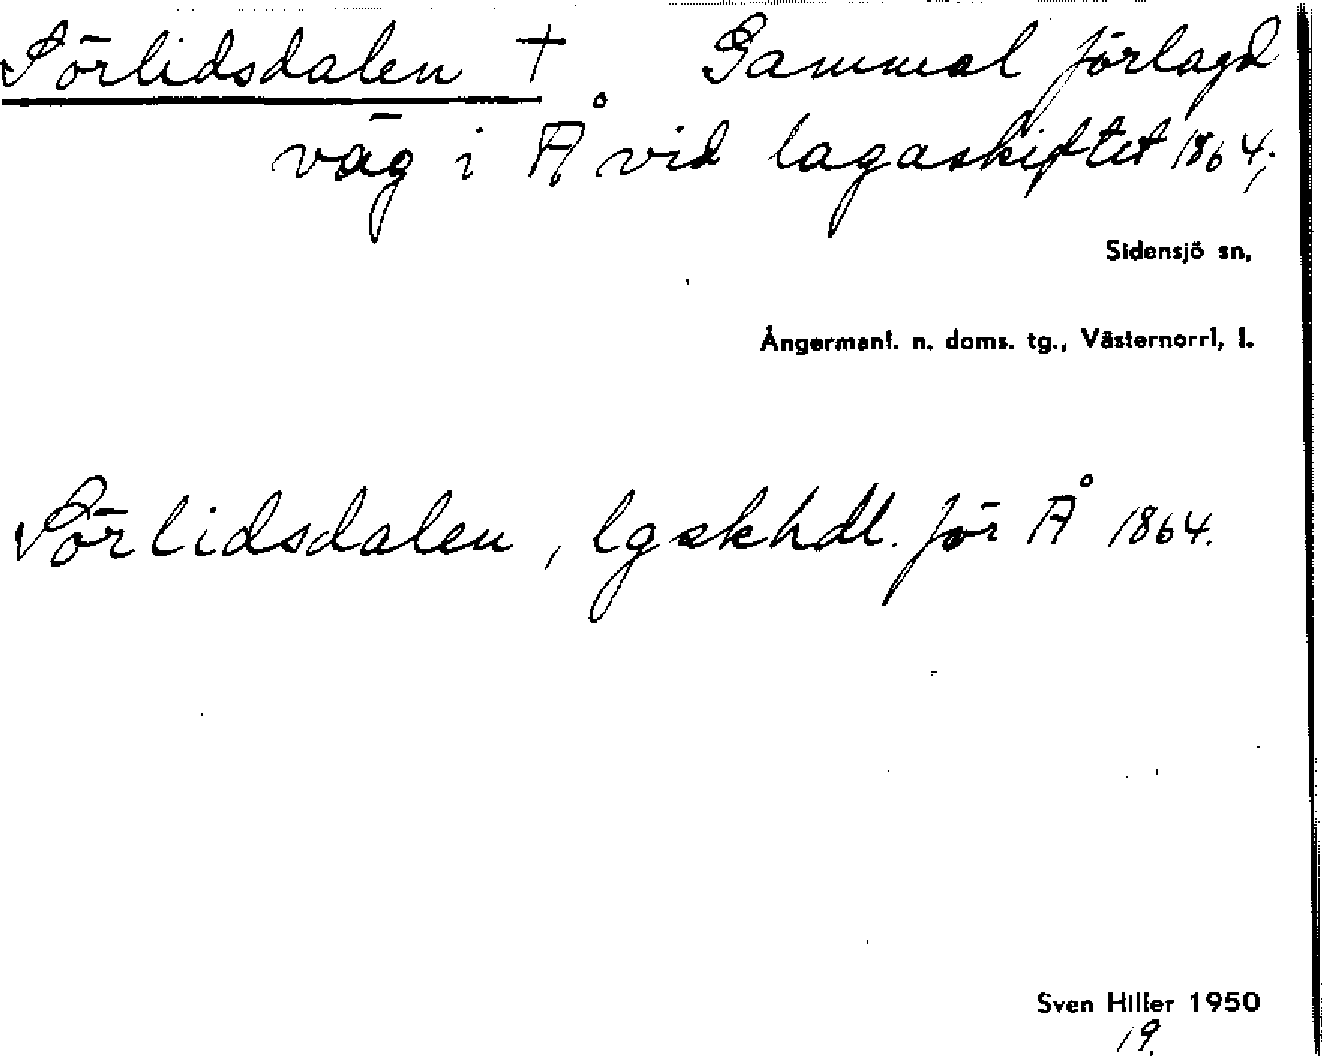 Sörlidsdalen † Gammal förlagd
väg i Å vid lagaskiftet 1864;
Sidensjö sn,
Ångermanl. n. doms. tg., Västernorrl, l.
Sörlidsdalen, lgskhdl. för Å 1864.
Sven Hiller 1950
19.